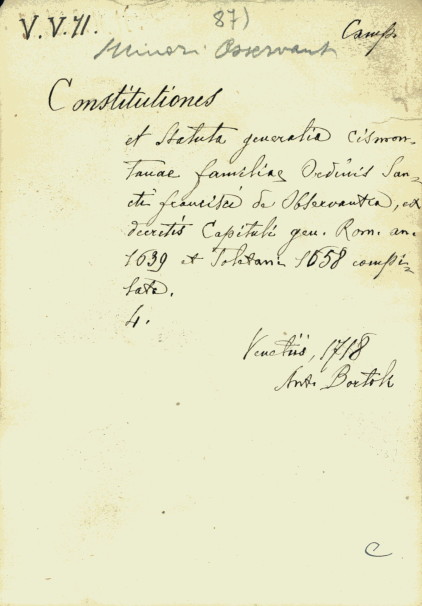 V.V.71.
87)
Camp.
Minori Osservanti
Constitutiones
et Statuta generalia Cismon-
tanae familiae Ordinis San-
cti francisci de Observantia, ex
decretis Capituli gen. Rom. an.
1639 et Toletani 1658 compi-
lata.
4.
Venetiis, 1718
Ant. Bortoli
C